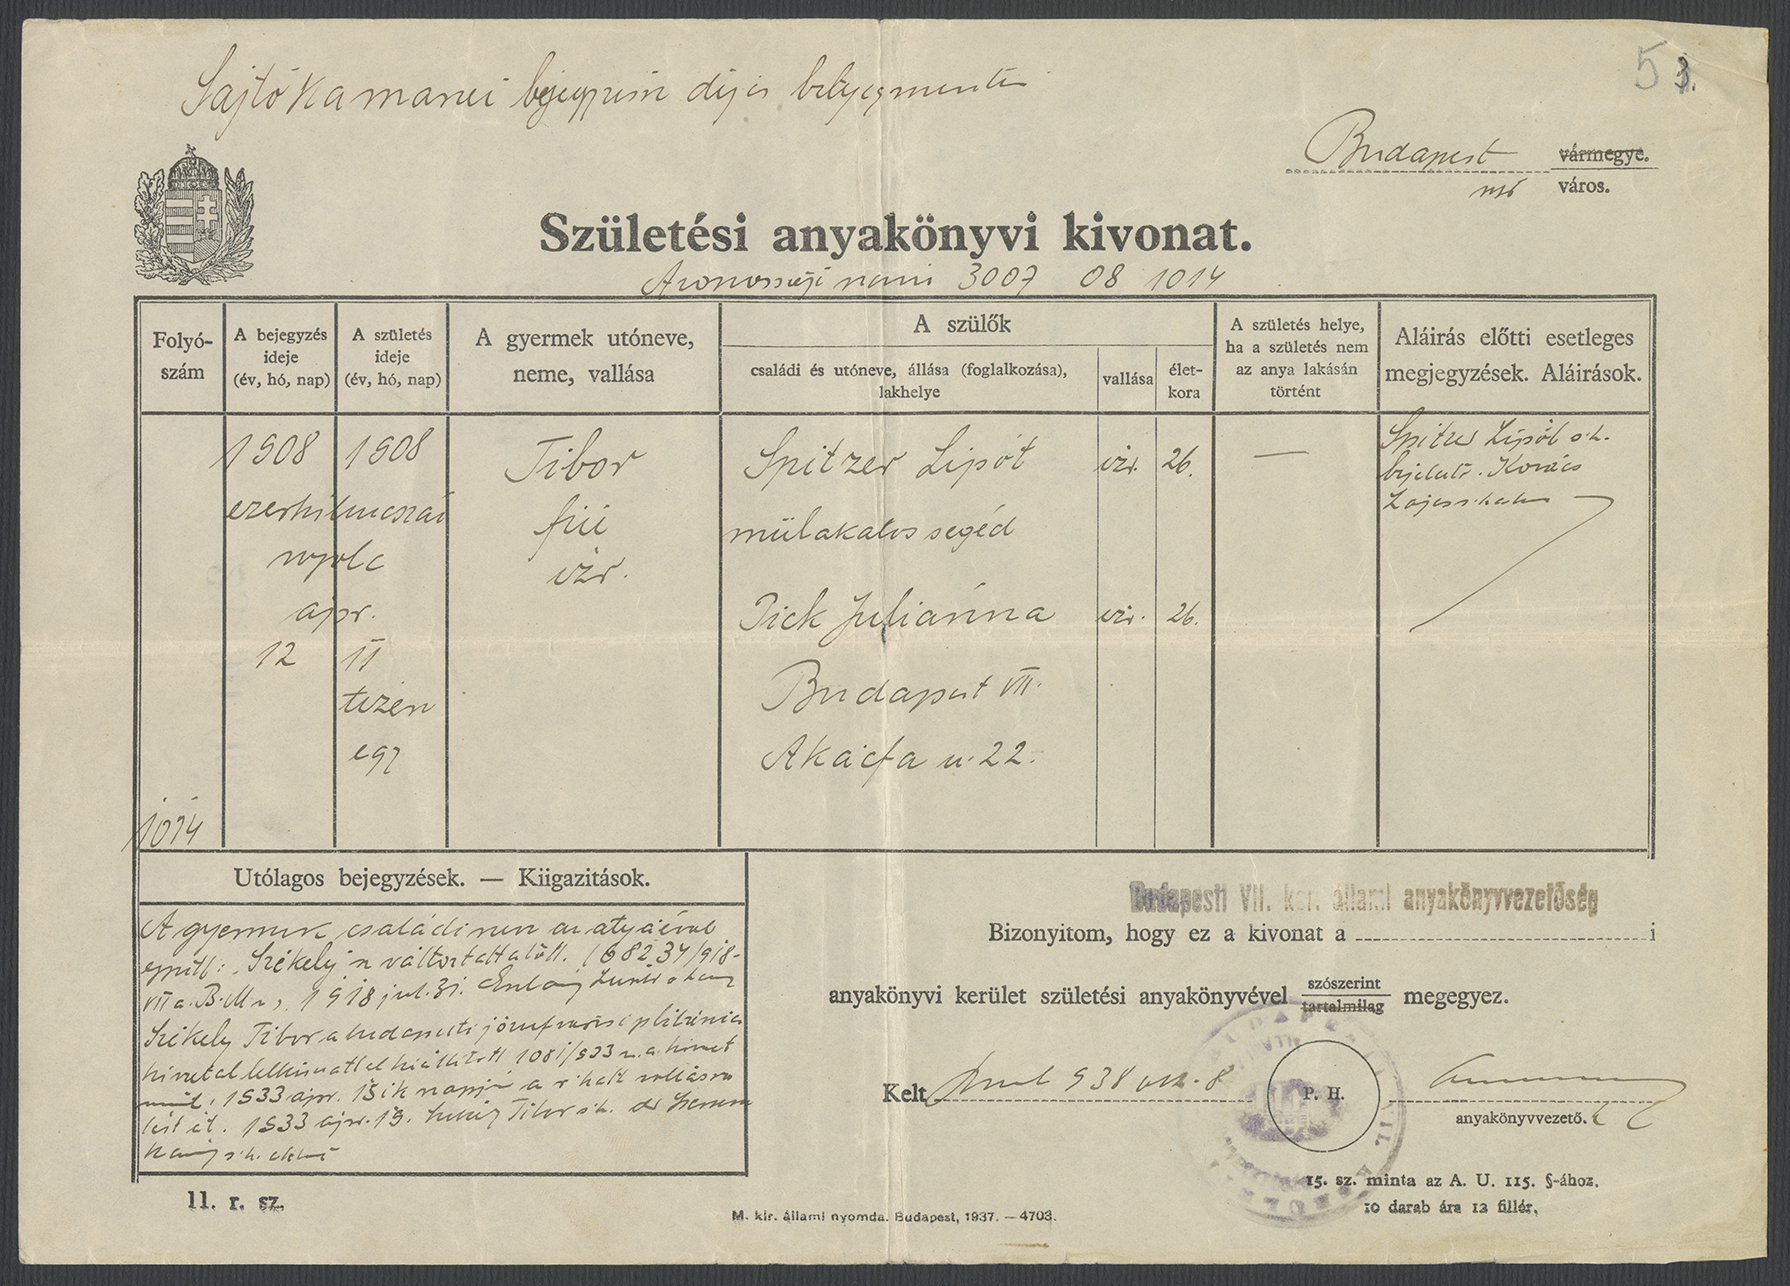 Sajtókamarai bejegyzésre díj és bélyegmentes
53.
Budapest vármegye.
város.
Születési anyakönyvi kivonat.
Azonossági 3007 08 1014
Folyó-
szám
A bejegyzés
ideje
(év, hó, nap)
A születés
ideje
(év, hó, nap)
A gyermek utóneve,
neme, vallása
A szülők
családi és utóneve, állása (foglalkozása),
lakhelye
vallása
élet-
kora
A születés helye,
ha a születés nem
az anya lakásán
történt
Aláirás előtti esetleges
megjegyzések. Aláirások.
1908 1908 Tibor Spitzer Lipót izr. 26. — Spitzer Lipót s.k.
bejelentő. Kovács
Lajos s.k. akv
ezerkilencszáz fiú műlakatos segéd
nyolc izr.
apr. Pick Julianna izr. 26.
12 11 Budapest VII.
tizen
egy Akácfa u. 22.
1014
Utólagos bejegyzések. — Kiigazitások.
A gyermek családi neve az atyáéval
együtt "Székely"-re változtattatott. 168234/918-
VII a. B.M. 1918 jul. 31.
Székely Tibor a budapesti józsefvárosi plébánia
hivatal 1081/933
1933 apr. 15ik napján a r. kath. vallásra
tért át. 1933 apr. 19. Székely Tibor s.k.
s.k. akv
11. r. sz.
Budapesti VII. ker. állami anyakönyvvezetőség
Bizonyitom, hogy ez a kivonat a i
anyakönyvi kerület születési anyakönyvével szószerint tartalmilag megegyez.
Kelt Bpest 938 okt. 8
P. H.
anyakönyvvezető.
15. sz. minta az A. U. 115. §-ához.
10 darab ára 12 fillér.
M. kir. állami nyomda. Budapest, 1937. — 4703.